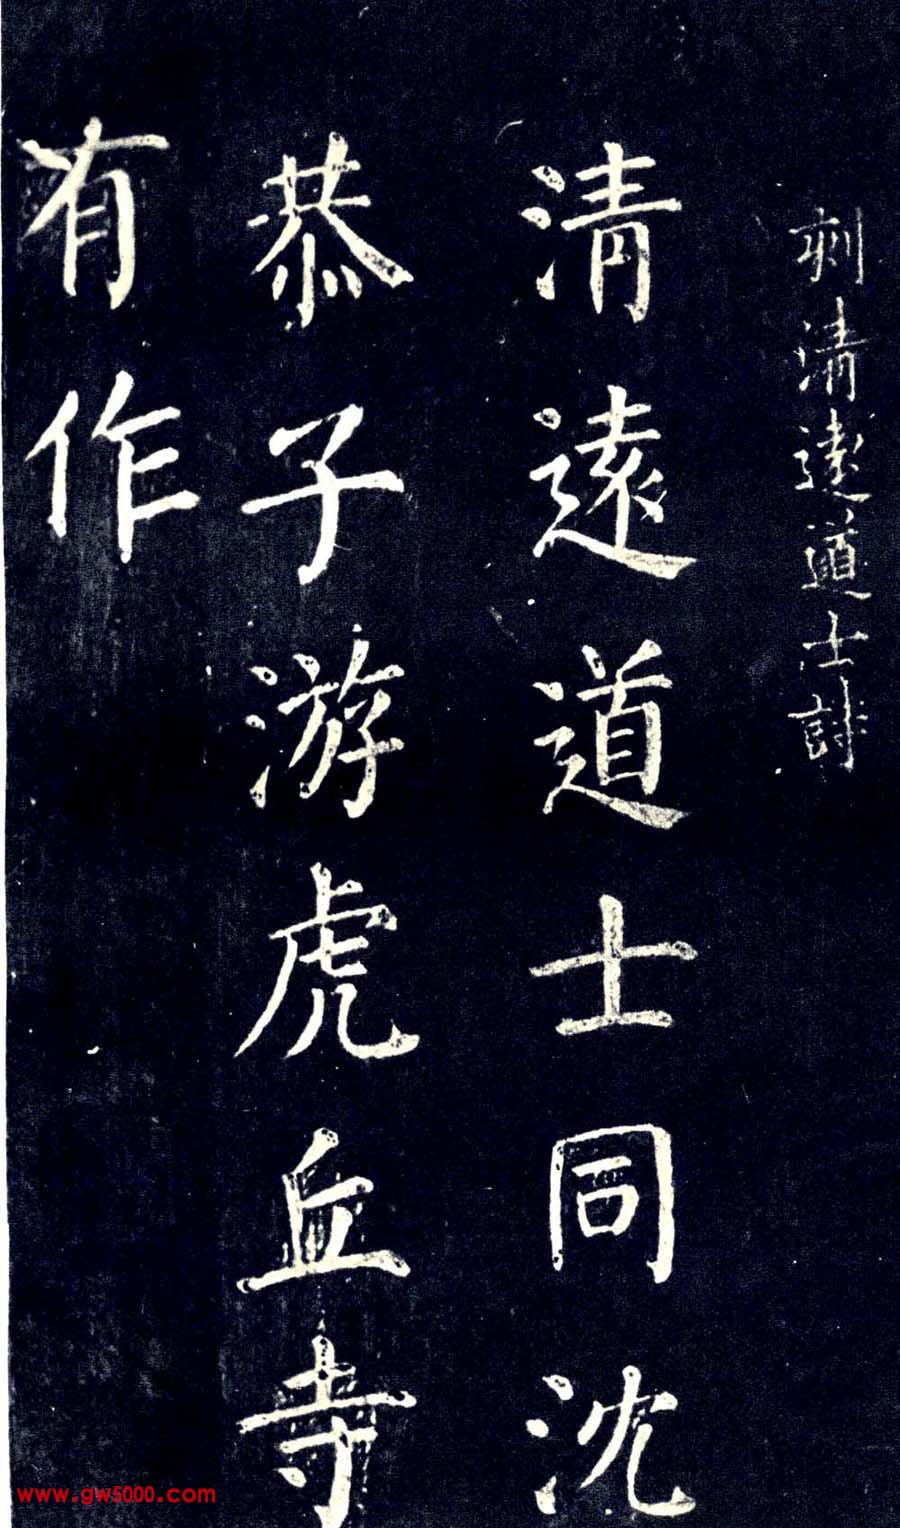 刻清遠道士詩
清遠道士同沈
恭子游虎丘寺
有作
www.gw5000.com